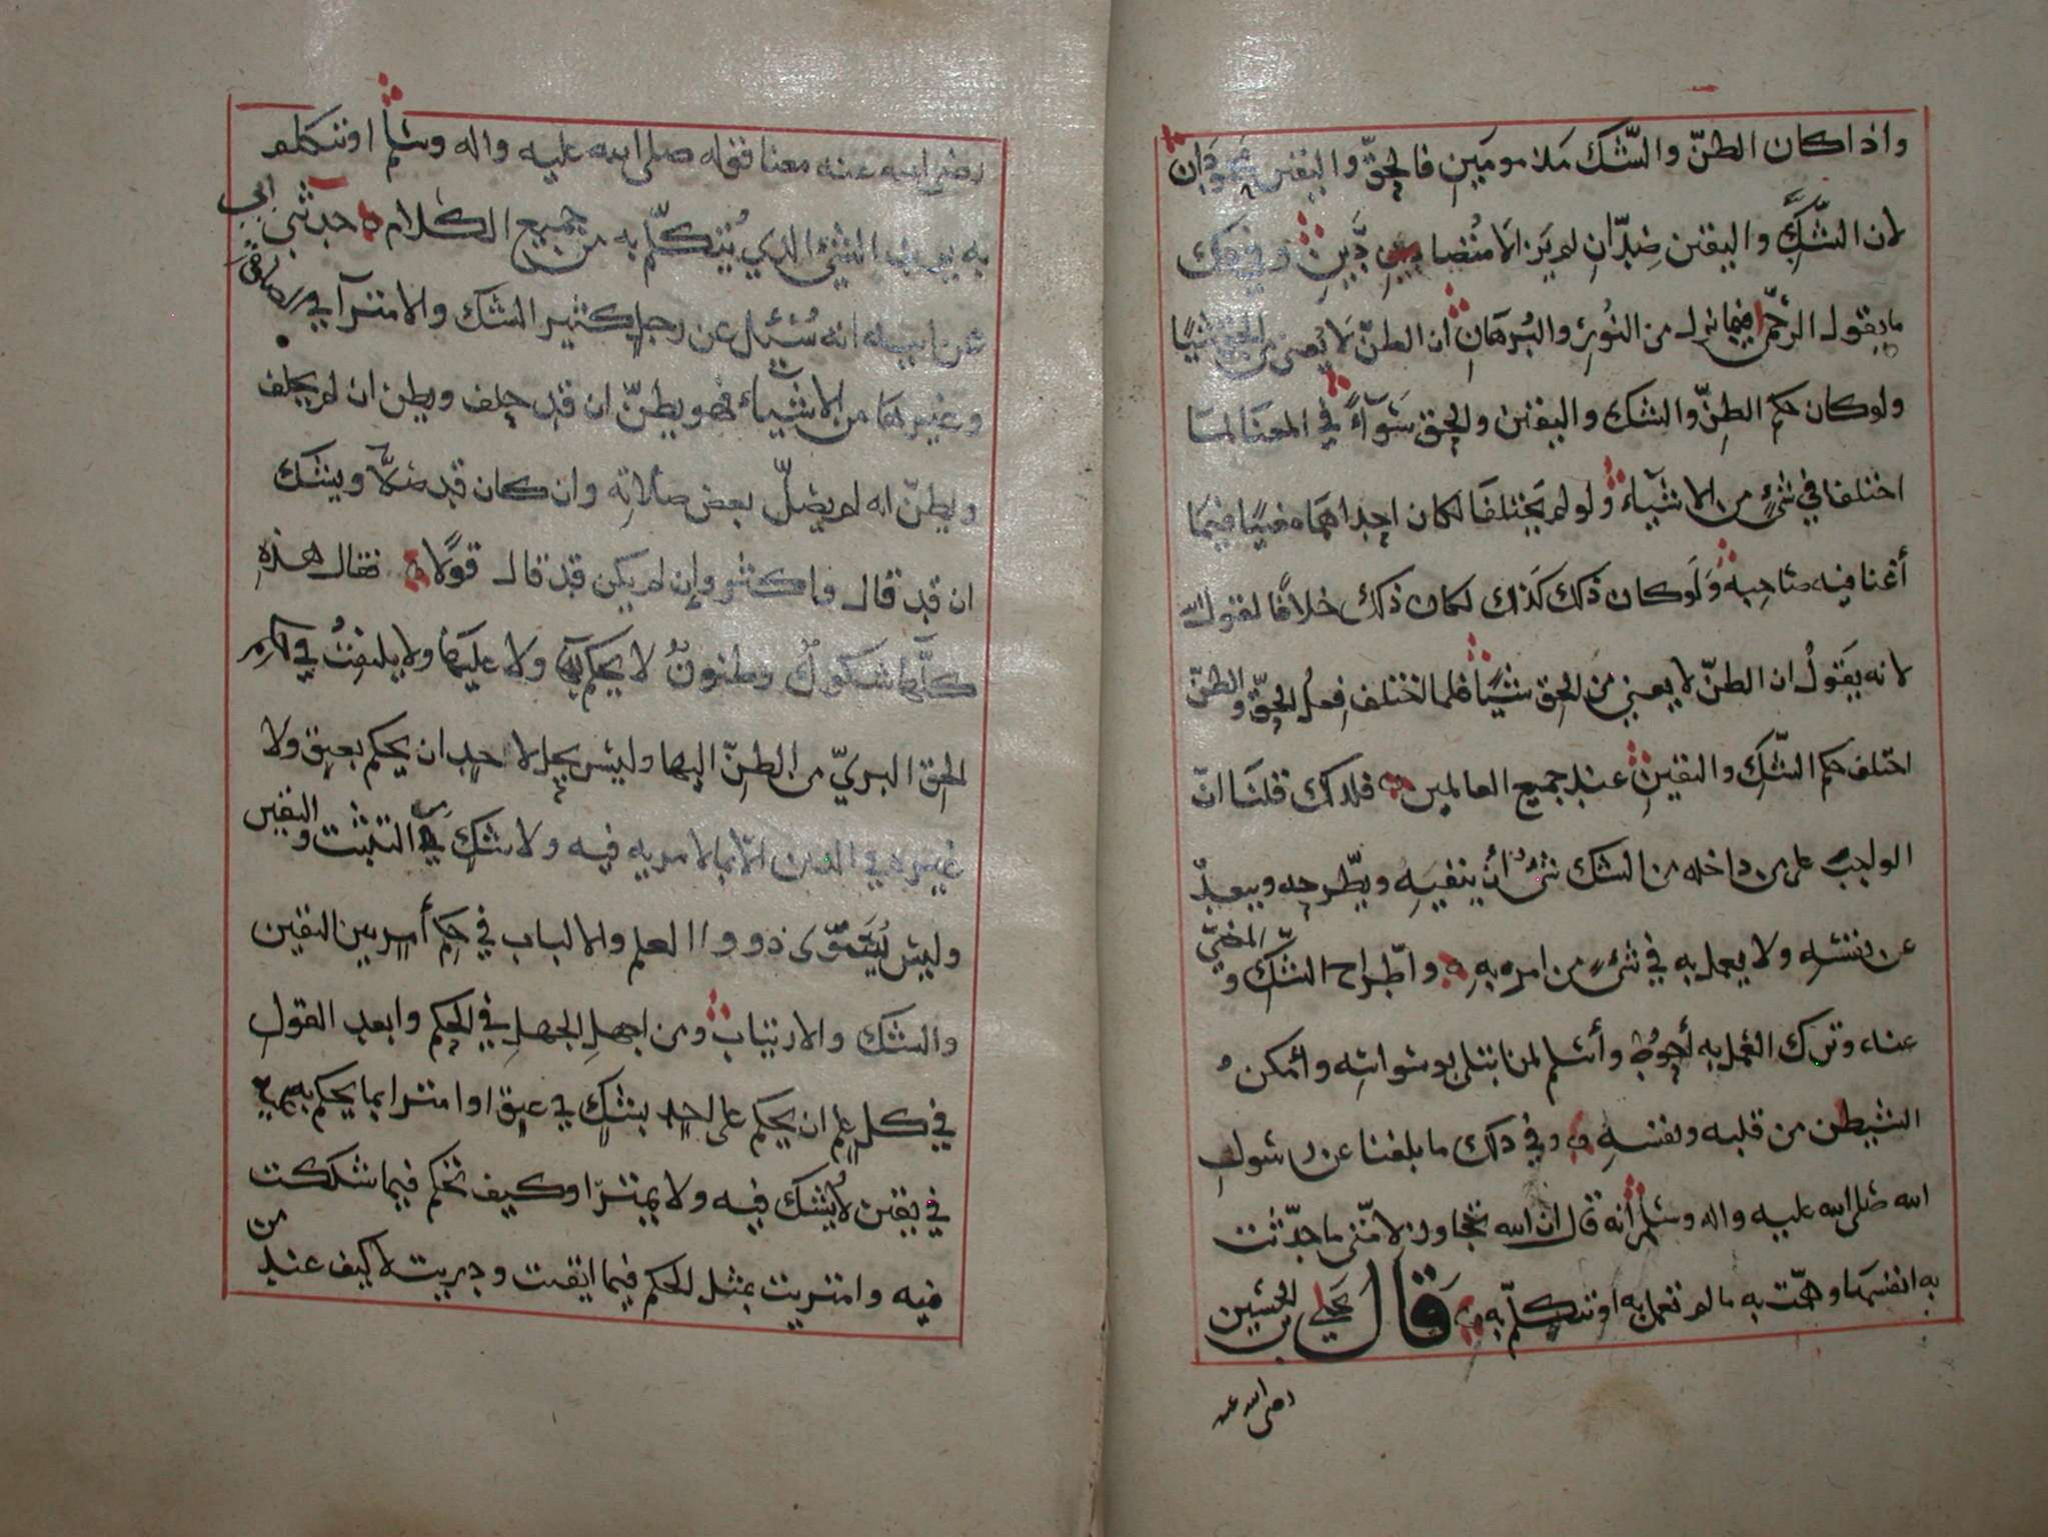 واذا كان الظنّ والشّك مذمومين فالحقّ واليقين محمودان
لان الشّك واليقين ضدّان لم يزالا متضادين وفي ذلك
ما يقول الرحمن فيما نزل من النور والبرهان ان الظنّ لا يغني من الحق شيئا
ولو كان حكم الظنّ والشك واليقين والحق سوآء في المعنا لما
اختلفا في شيء من الاشيآء ولو لم يختلفا لكان احداهما مغنيا فيما
أغنا فيه صاحبه ولو كان ذلك كذلك لكان ذلك خلافا لقول الله
لانه يقول ان الظنّ لا يغني من الحق شيئا فلما اختلف فعل الحقّ والظنّ
اختلف حكم الشّك واليقين عند جميع العالمين فلذلك قلنا انّ
الواجب على من داخله من الشك شيء أن ينفيه ويطّرحه ويبعد
عن نفسه ولا يعمل به في شيء من امره به واطّراح الشّك والمضيّ
عناه وترك العمل به أحوط وأسلم لمن ابتلي بوسواسه وامكن
الشيطن من قلبه ونفسه وفي ذلك ما بلغنا عن رسول
الله صلى الله عليه واله وسلم أنه قال ان الله تجاوز لامّتي ما حدّثت
به انفسها وهمّت به ما لم تعمل به او تتكلّم به قال يحيى بن الحسين
رضى الله عنه
رضي الله عنه معنا قوله صلى الله عليه واله وسلم او تتكلم
به يريد الشيء الذي يُتكلّم به من جميع الكلام حدثني ابي
عن ابيه انه سُئل عن رجل كثير الشك والامترآ في الصلاة
وغيرها من الاشيآء فهو يظنّ ان قد حلف ويظن ان لم يحلف
ويظنّ انه لم يصلّ بعض صلاته وان كان قد صلّا ويشك
ان قد قال وامكثو وإن لم يكن قد قال قولا فقال هذه
كلّها شكوك وظنون لا يحكم بها ولا عليها ولا يلتفت في حكم
الحق البريّ من الظنّ اليها وليس يحل لاحد ان يحكم بعتق ولا
غيره في الدين الّا بما لا مريه فيه ولا شك في التثبت واليقين
وليس يُسوّى ذووا العلم والالباب في حكم أمر بين اليقين
والشك والارتياب ومن اجهل الجهل في الحكم وابعد القول
في كل علم ان يحكم على احد بشك في عتق او امترا بما يحكم به
في يقين لا يشك فيه ولا يمترا وكيف تحكم فيما شككت
فيه وامتريت بمثل الحكم فيما ايقنت ودريت لا كيف عند من